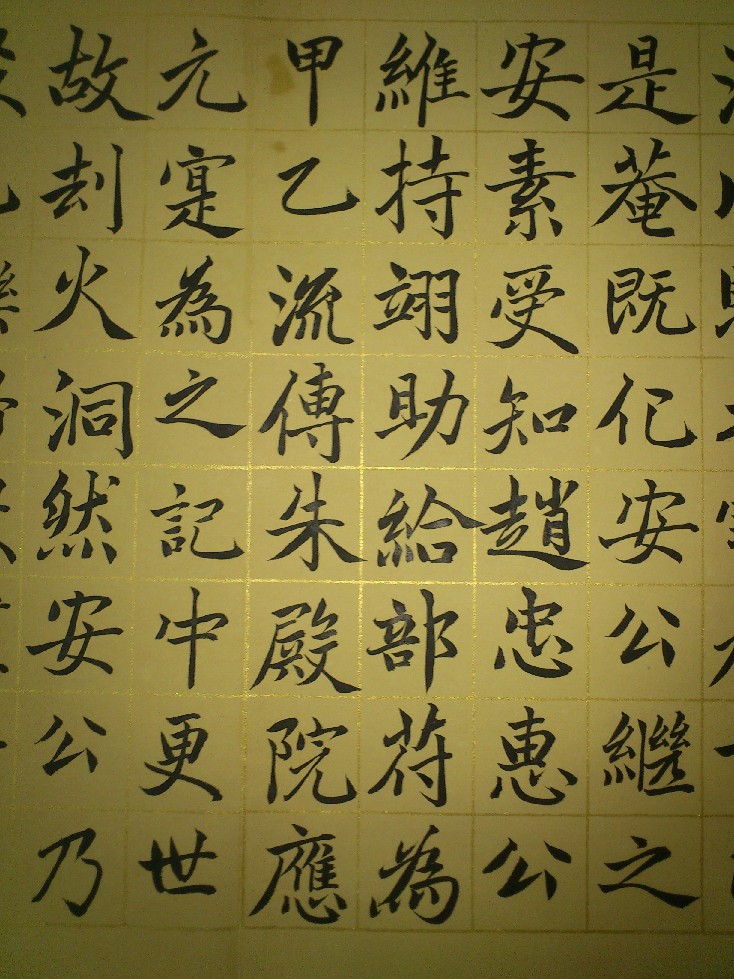 是菴既化安公繼之
安素受知趙忠惠公
維持翊助給部苻為
甲乙流傳朱殿院應
元寔為之記中更世
故刦火洞然安公乃